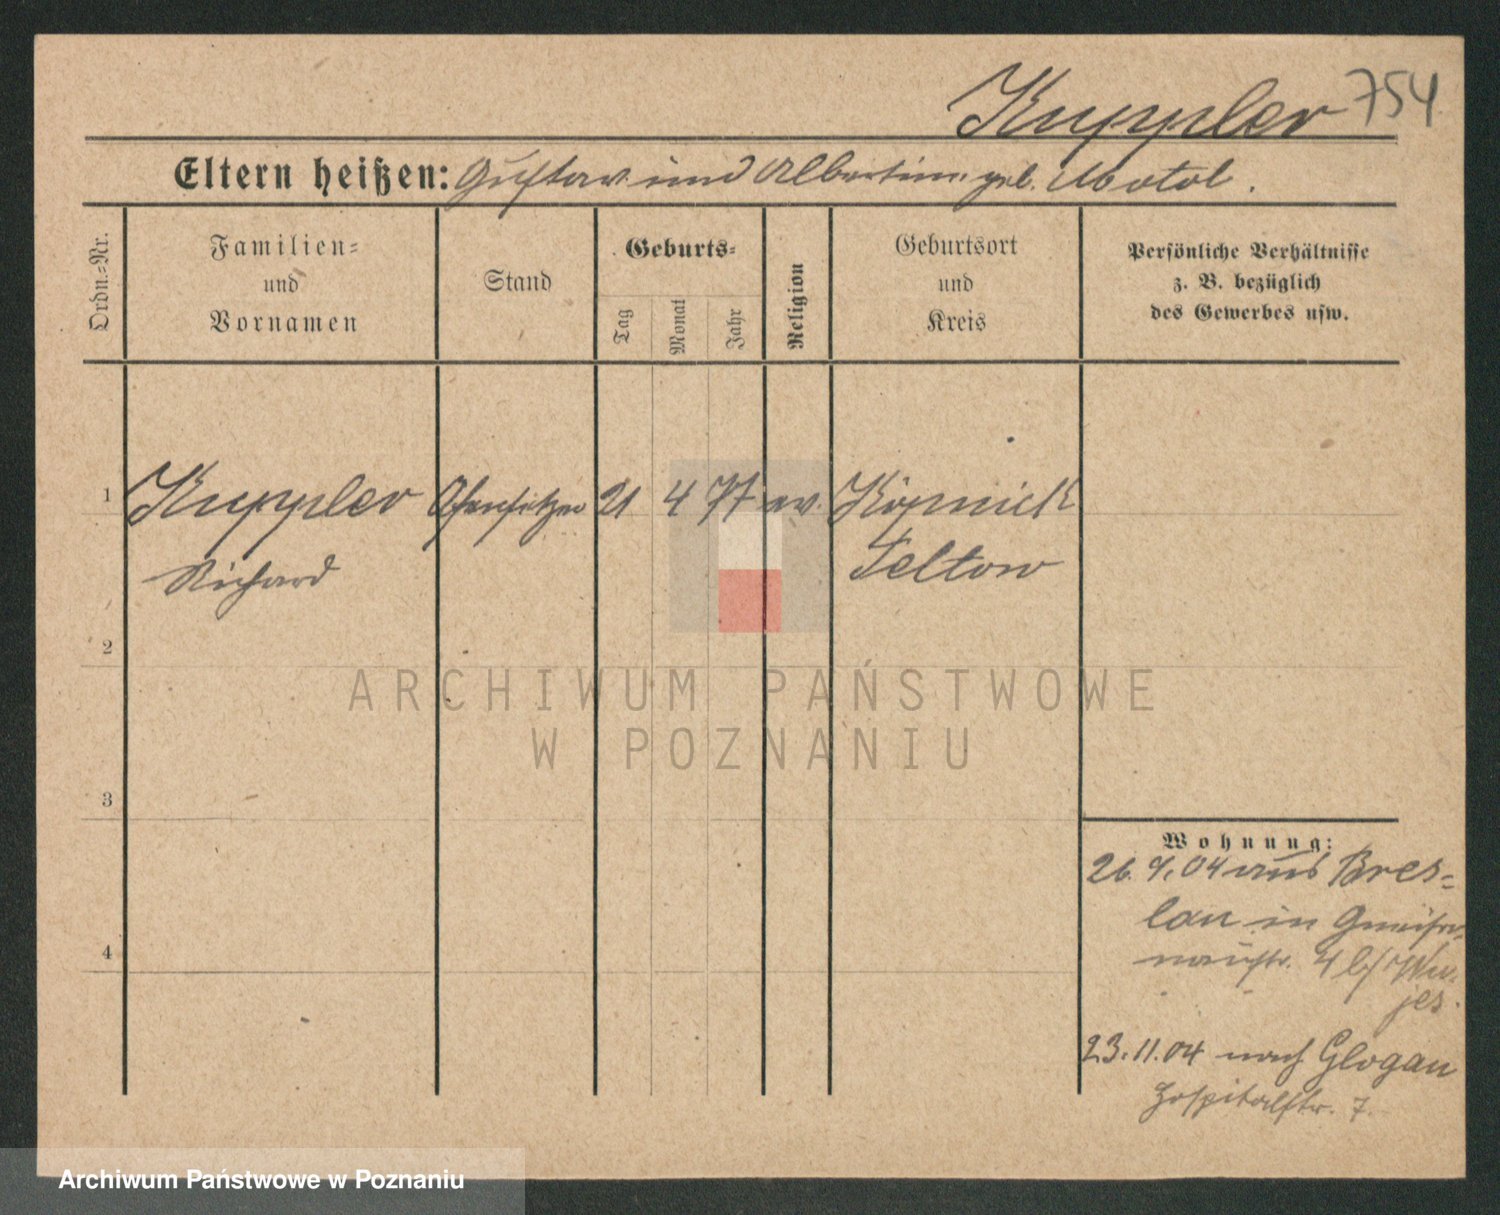 Kuppler 754
Eltern heißen: Gustav und Albertine geb. Motal.
Ordn.=Nr.
Familien=
und
Vornamen
Stand
Geburts=
Tag
Monat
Jahr
Religion
Geburtsort
und
Kreis
Persönliche Verhältnisse
z. B. bezüglich
des Gewerbes usw.
1 Kuppler Ofensetzer 21 4 77 ev. Köpnick
Richard Teltow
2
3
4
Wohnung:
26. 9. 04 aus Bres=
lau in Gneise
naustr. 4 b/
23. 11. 04 nach Glogau
Hospitalstr. 7.
ARCHIWUM PAŃSTWOWE
W POZNANIU
Archiwum Państwowe w Poznaniu